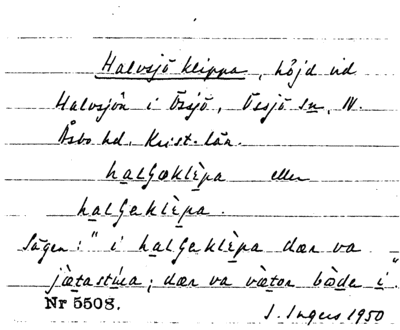 Halvsjö klippa, höjd vid
Halvsjön i Össjö, Össjö sn, N.
Åsbo hd. Krist. län.
halGæklèpa eller
halGeklèpa.
Sägen: "i halGeklèpa dær va
jætastúa; dær va vætor bòde i"
Nr 5508.
J. Ingers 1950